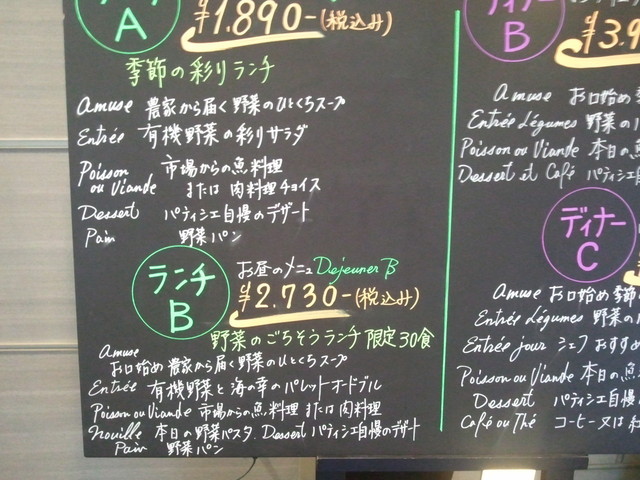 A
¥1.890-(税込み)
季節の彩りランチ
Amuse 農家から届く野菜のひとくちスープ
Entrée 有機野菜の彩りサラダ
Poisson 市場からの魚料理
ou Viande または 肉料理チョイス
Dessert パティシエ自慢のデザート
Pain 野菜パン
ランチ
B
お昼のメニュ Dejeuner B
¥2.730-(税込み)
野菜のごちそうランチ 限定30食
Amuse
お口始め 農家から届く野菜のひとくちスープ
Entrée 有機野菜と海の幸のパレットオードブル
Poisson ou Viande 市場からの魚料理 または 肉料理
Nouille 本日の野菜パスタ. Dessert パティシエ自慢のデザート
Pain 野菜パン
ディナー
B
¥3.9
Amuse お口始め
Entrée Légumes 野菜の
Poisson ou Viande 本日の
Dessert et Café パティシエ
ディナー
C
Amuse お口始め 季節
Entrée Légumes 野菜の
Entrée jour シェフおすすめ
Poisson ou Viande 本日の魚
Dessert パティシエ自慢
Café ou Thé コーヒー又は紅